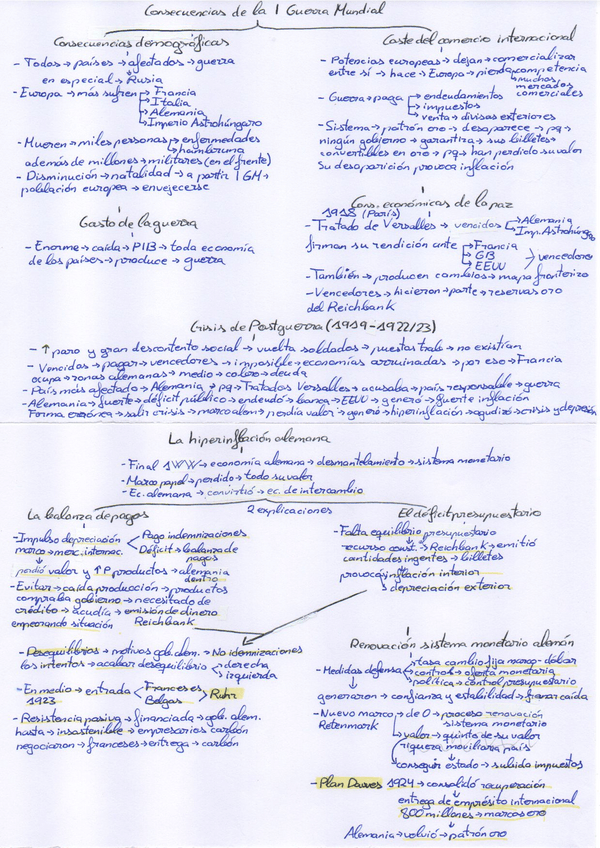 Consecuencias de la I Guerra Mundial
Consecuencias demográficas
- Todos → países → afectados → guerra
en especial → Rusia
- Europa → más sufren → Francia
→ Italia
→ Alemania
→ Imperio Astrohúngaro
- Mueren → miles personas → enfermedades
→ hambruna
además de millones → militares (en el frente)
- Disminución → natalidad → a partir I GM →
población europea → envejecerse
Gasto de la guerra
- Enorme → caída → PIB → toda economía
de los países → produce → guerra
Coste del comercio internacional
- Potencias europeas → dejan → comercializar
entre sí → hace → Europa → pierda → competencia
→ muchos
mercados
comerciales
- Guerra → paga → endeudamientos
→ impuestos
→ venta → divisas exteriores
- Sistema → patrón oro → desaparece → pq →
ningún gobierno → garantiza → sus billetes →
convertibles en oro → pq → han perdido su valor
Su desaparición provoca inflación
Cons. económicas de la paz
1918 (París)
- Tratado de Versalles → vencidos → Alemania
→ Imp. Astrohúngaro
firman su rendición ante → Francia
→ GB
→ EEUU
vencedores
- También → producen cambios → mapa fronterizo
- Vencedores → hicieron → parte → reservas oro
del Reichbank
Crisis de Postguerra (1919-1922/23)
- ↑ paro y gran descontento social → vuelta soldados → puestos trab → no existían
- Vencidos → pagar → vencedores → imposible → economías arruinadas → por eso → Francia
ocupa → zonas alemanas → medio → cobro → deuda
- País más afectado → Alemania → pq → Tratados Versalles → acusaba → país responsable → guerra
- Alemania → fuerte → déficit público → endeudó → banca → EEUU → generó → fuerte inflación
Forma errónea → salir crisis → marco alem → perdía valor → generó → hiperinflación → agudizó → crisis y depresión
La hiperinflación alemana
- Final 1WW → economía alemana → desmantelamiento → sistema monetario
- Marco papel → perdido → todo su valor
- Ec. alemana → convirtió → ec. de intercambio
2 explicaciones
La balanza de pagos
- Impulso depreciación
marco → merc. internac.
Pago indemnizaciones
Déficit → balanza de
pagos
perdió valor y ↑ P productos → alemania
dentro
- Evitar → caída producción → productos
compraba gobierno → necesitado de
crédito → acudía → emisión de dinero
empeorando situación Reichbank
El déficit presupuestario
- Falta equilibrio presupuestario
recurso const. → Reichbank → emitió
cantidades ingentes → billetes
provocó → inflación interior
→ depreciación exterior
- Desequilibrios → motivos gob. alem. → No idemnizaciones
los intentos → acabar desequilibrio → derecha
→ izquierda
- En medio → entrada
1923
Franceses
Belgas
Ruhr
- Resistencia pasiva → financiada → gob. alem.
hasta → insostenible → empresarios carbón
negociaron → franceses → entrega → carbón
Renovación sistema monetario alemán
- Medidas defensa
→ tasa cambio fija marco-dólar
→ control → oferta monetaria
→ política → control presupuestario
generaron → confianza y estabilidad → frenar caída
- Nuevo marco → de 0 → proceso renovación
Retenmark sistema monetario
→ valor → quinto de su valor
riqueza moviliaria país
conseguir estado → subido impuestos
- Plan Dawes 1924 → consolidó recuperación
entrega de empréstito internacional
800 millones → marcos oro
Alemania → volvió → patrón oro